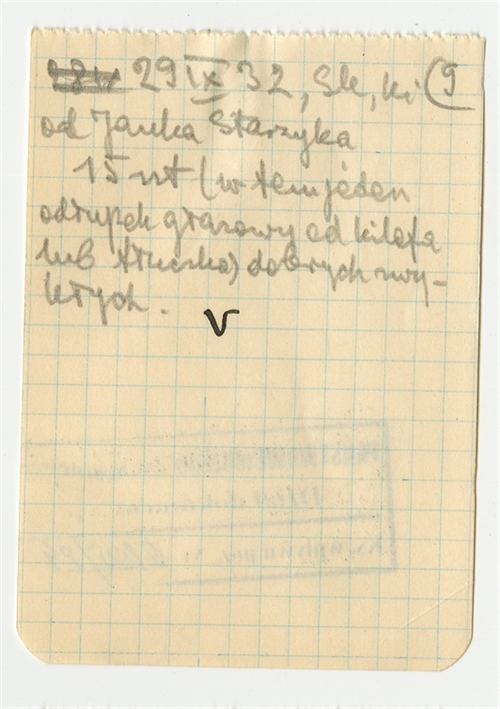 29 IX 32, Sk, ki (9
od Janka Starzyka
15 szt (w tem jeden
odłupek głazowy od kilofa
lub tłuczka) dobrych zwy-
kłych.
V